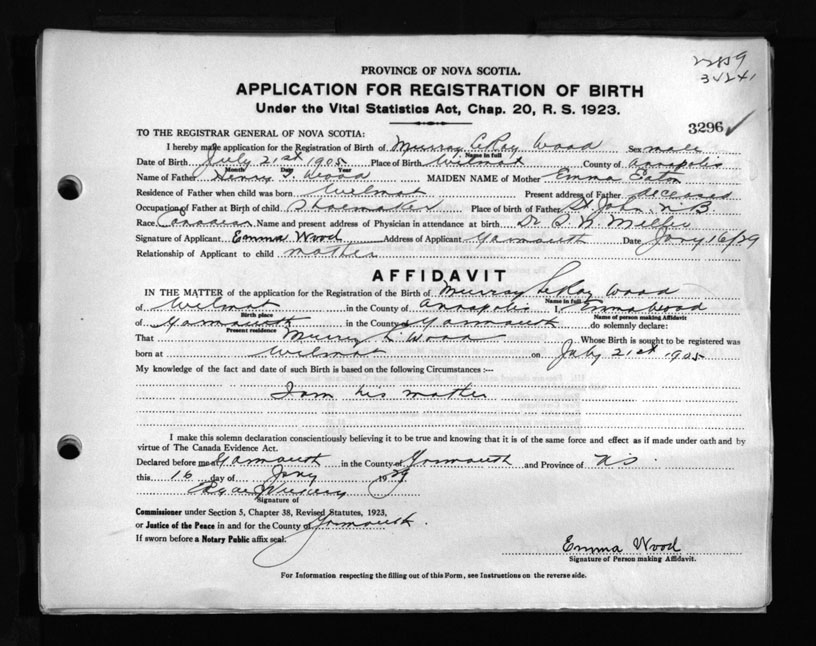 3241
PROVINCE OF NOVA SCOTIA.
APPLICATION FOR REGISTRATION OF BIRTH
Under the Vital Statistics Act, Chap. 20, R. S. 1923.
3296
TO THE REGISTRAR GENERAL OF NOVA SCOTIA:
I hereby make application for the Registration of Birth of Murray LeRoy Wood Sex male
Name in full
Date of Birth July 21st 1905 Place of Birth Wilmot County of Annapolis
Month Day Year
Name of Father Wood MAIDEN NAME of Mother Emma Eaton
Residence of Father when child was born Wilmot Present address of Father deceased
Occupation of Father at Birth of child Shoemaker Place of birth of Father St. John N.B
Race Canadian Name and present address of Physician in attendance at birth Dr
Signature of Applicant Emma Wood Address of Applicant Yarmouth Date Jany 16/29
Relationship of Applicant to child mother
AFFIDAVIT
IN THE MATTER of the application for the Registration of the Birth of Murray LeRoy Wood
Name in full
of Wilmot in the County of Annapolis I, Emma Wood
Birth place Name of person making Affidavit
of Yarmouth in the County Yarmouth do solemnly declare:
Present residence
That Murray L. Wood Whose Birth is sought to be registered was
born at Wilmot on July 21st 1905
My knowledge of the fact and date of such Birth is based on the following Circumstances :—
I am his mother
I make this solemn declaration conscientiously believing it to be true and knowing that it is of the same force and effect as if made under oath and by
virtue of The Canada Evidence Act.
Declared before me at Yarmouth in the County of Yarmouth and Province of N.S.
this 16 day of Jany 1929
Signature of
Commissioner under Section 5, Chapter 38, Revised Statutes, 1923,
or Justice of the Peace in and for the County of Yarmouth.
If sworn before a Notary Public affix seal.
Emma Wood
Signature of Person making Affidavit.
For Information respecting the filling out of this Form, see Instructions on the reverse side.